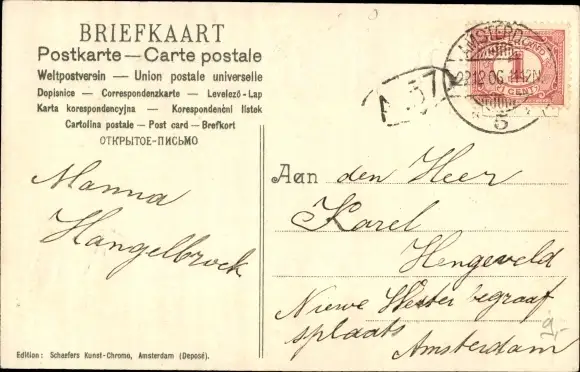 BRIEFKAART
Postkarte — Carte postale
Weltpostverein — Union postale universelle
Dopisnice — Correspondenzkarte — Levelező-Lap
Karta korespondencyjna — Korespondenčni listek
Cartolina postale — Post card — Brefkort
ОТКРЫТОЕ-ПИСЬМО
AMSTERD
1
1 CENT
5
Manna
Hangelbroek
Aan den Heer
Karel
Hengeveld
Niewe Wester begraaf
splaats
Amsterdam
Edition: Schaefers Kunst-Chromo, Amsterdam (Deposé).